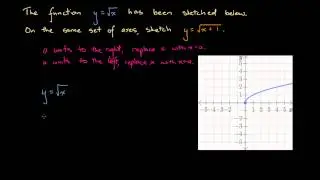 The function y=√x has been sketched below.
On the same set of axes, sketch y=√(x+1).
a units to the right, replace x with x-a.
a units to the left, replace x with x+a.
y=√x
5
4
3
2
1
-5 -4 -3 -2 -1 0 1 2 3 4
-1
-2
-3
-4